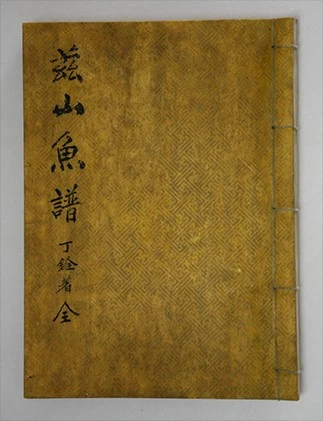 茲山魚譜
丁銓著
全